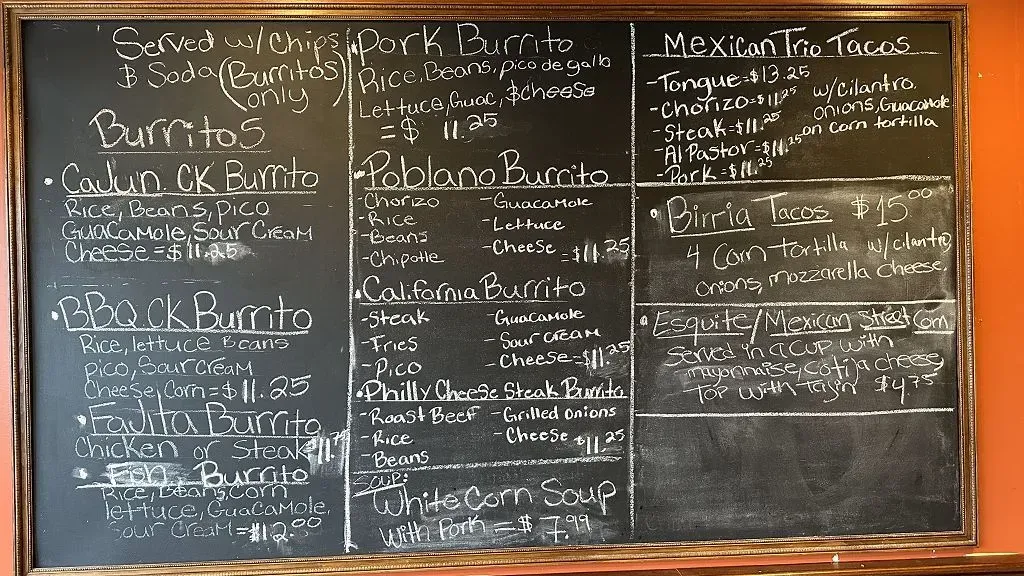 Served w/Chips
& Soda (Burritos
only)
Burritos
• Cajun CK Burrito
Rice, Beans, pico
Guacamole, Sour Cream
Cheese = $11.25
• BBQ CK Burrito
Rice, lettuce Beans
pico, Sour Cream
Cheese, Corn = $11.25
• Fajita Burrito
Chicken or Steak
• Fish Burrito
Rice, Beans, Corn
lettuce, Guacamole,
Sour Cream = $12.00
• Pork Burrito
Rice, Beans, pico de gallo
Lettuce, Guac, $ Cheese
= $ 11.25
• Poblano Burrito
- Chorizo - Guacamole
- Rice - Lettuce
- Beans - Cheese = $11.25
- Chipotle
• California Burrito
- Steak - Guacamole
- Fries - Sour cream
- Pico - Cheese - $11.25
• Philly Cheese Steak Burrito
- Roast Beef - Grilled Onions
- Rice - Cheese $11.25
- Beans
Soup:
White Corn Soup
With Pork = $7.99
Mexican Trio Tacos
- Tongue - $13.25
- Chorizo = $11.25 w/cilantro,
- Steak = $11.25 onions, Guacamole
- Al Pastor = $11.25 on corn tortilla
- Pork = $11.25
• Birria Tacos $15.00
4 Corn tortilla w/cilantro
onions, mozzarella cheese,
• Esquite/Mexican Street Corn
Served in a cup with
mayonnaise, cotija cheese
Top with tajin $4.75